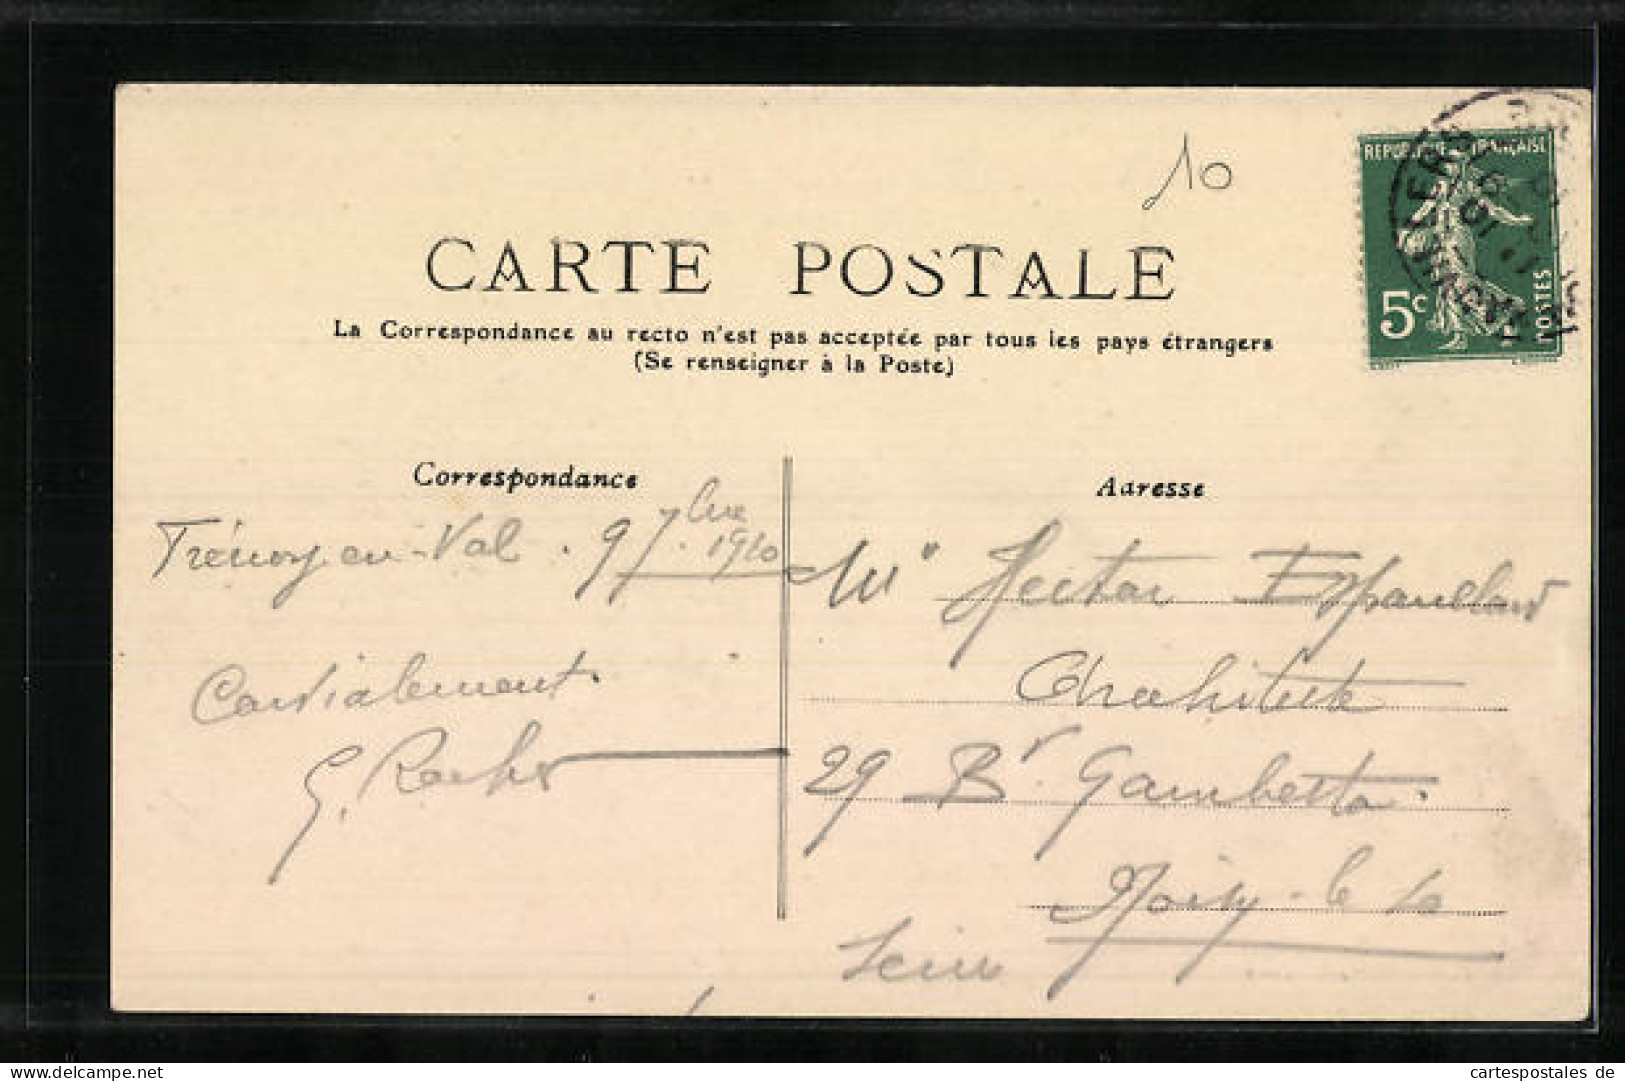 10
REPUBLIQUE FRANÇAISE
5c
POSTES
CARTE POSTALE
La Correspondance au recto n'est pas acceptée par tous les pays étrangers
(Se renseigner à la Poste)
Correspondance
Adresse
en-Val. 9 7bre 1910
Cordialement.
G.
Mr Hector
Architecte
29 Bd Gambetta.
Noisy-le
Seine
cartespostales.de
cartespostales de